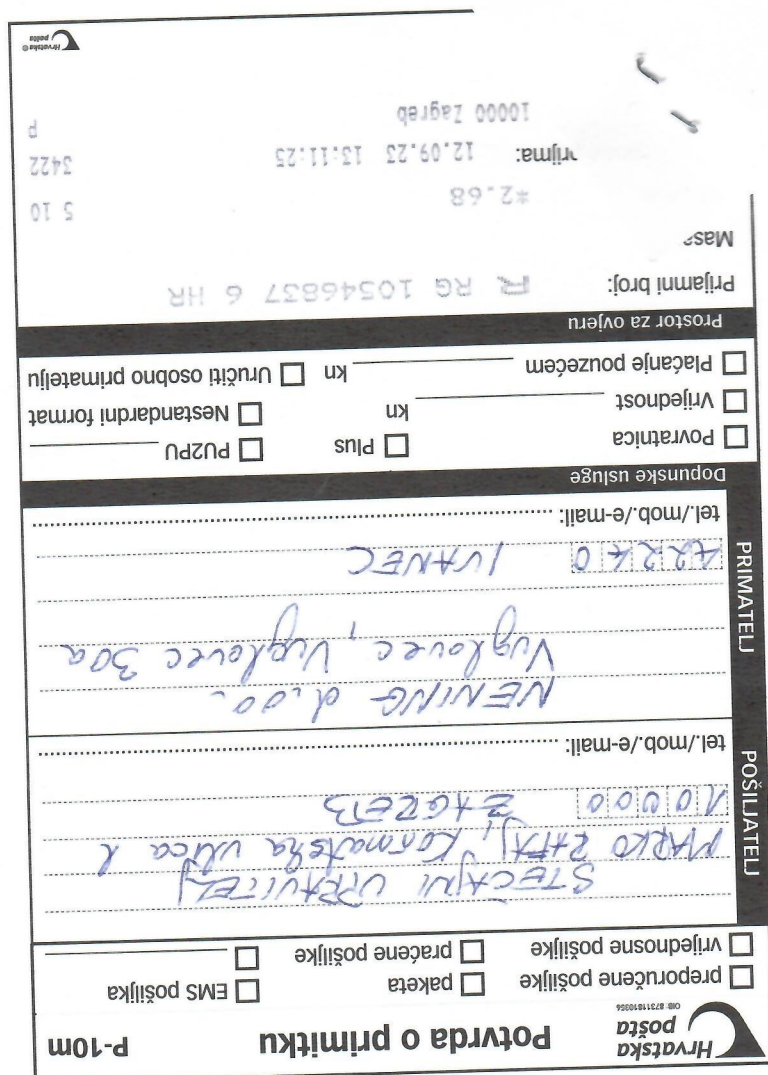 Hrvatska pošta
OIB: 87311810356
Potvrda o primitku
P-10m
preporučene pošiljke
paketa
EMS pošiljka
vrijednosne pošiljke
praćene pošiljke
POŠILJATELJ
STEČAJNI UPRAVITELJ
MARKO RAFAJ, Kornatska ulica 1
10000 ZAGREB
tel./mob./e-mail:
PRIMATELJ
NENING d.o.o.
Vuglovec, Vuglovec 30a
42240 IVANEC
tel./mob./e-mail:
Dopunske usluge
Povratnica
Plus
PU2PU
Vrijednost kn
Nestandardni format
Plaćanje pouzećem kn
Uručiti osobno primatelju
Prostor za ovjeru
Prijamni broj: R RG 10546837 6 HR
Mas
*2.68 5 10
rijma: 12.09.23 13:11:25 3422
10000 Zagreb p
Hrvatska pošta